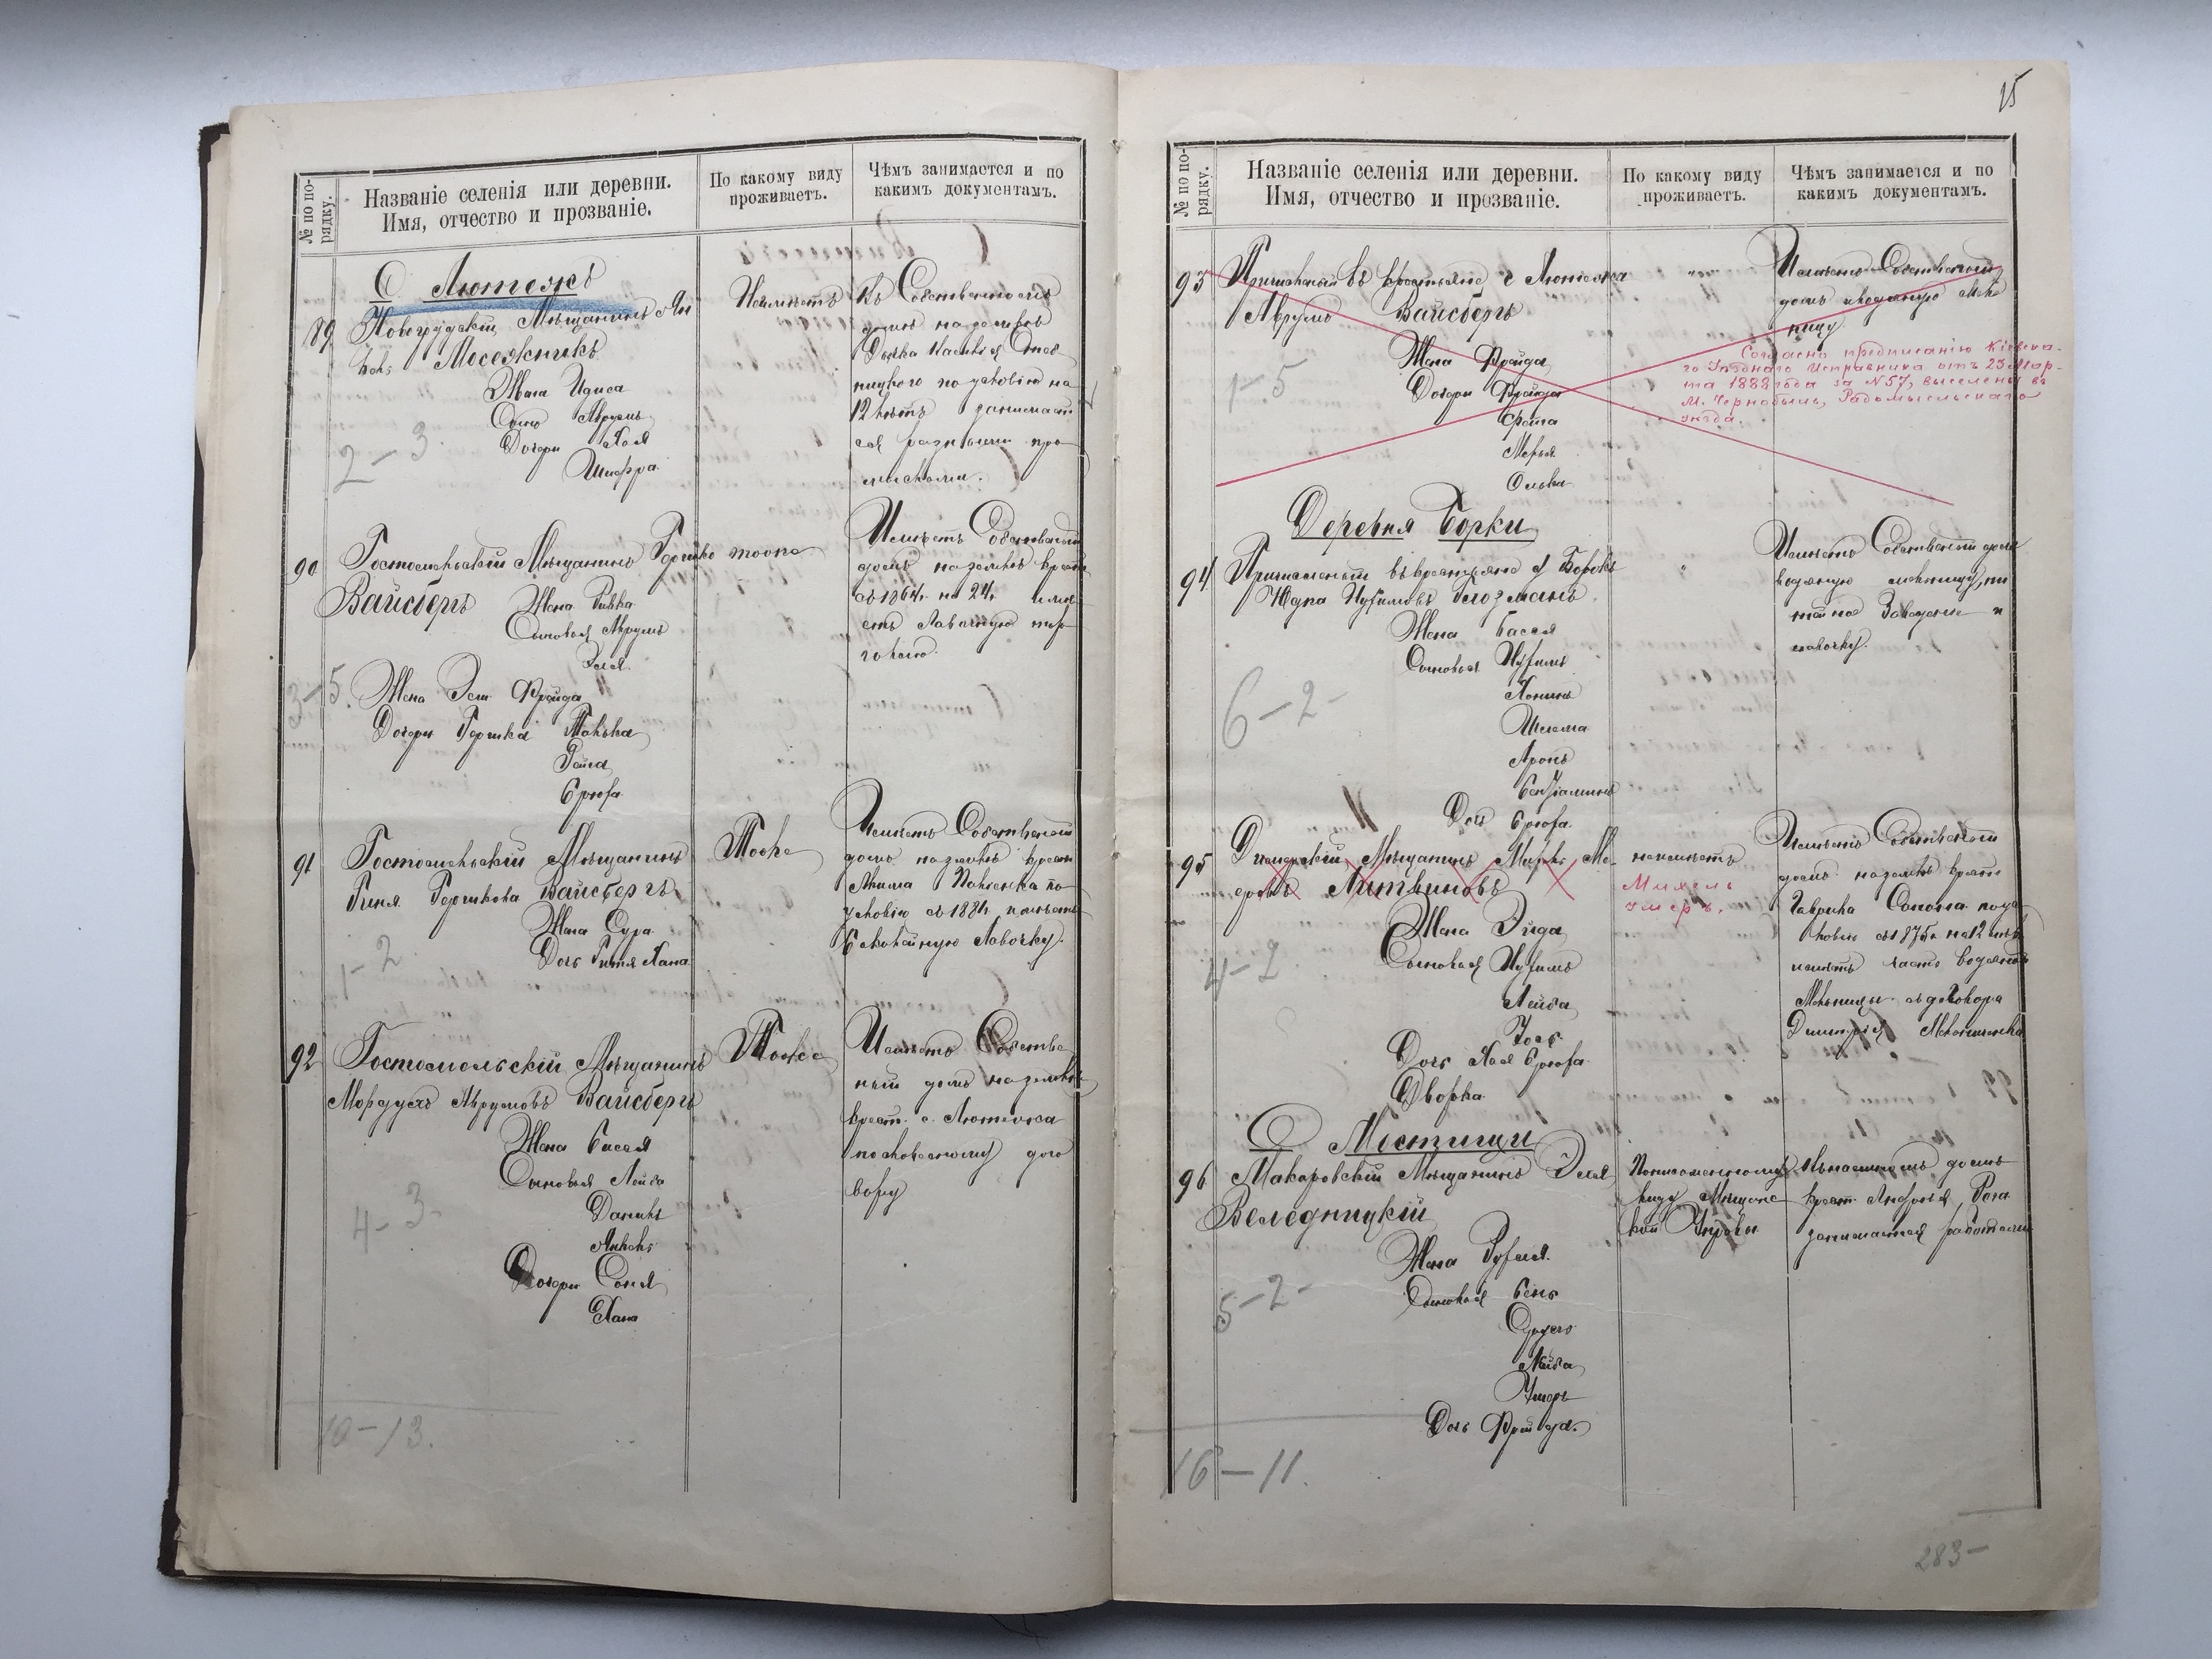 № по по-
рядку.
Названіе селенія или деревни.
Имя, отчество и прозваніе.
По какому виду
проживаетъ.
Чѣмъ занимается и по
какимъ документамъ.
С Лютежъ
89
Новогрудскій Мѣщанинъ Ян
кель Мосежникъ
Жена Идиса
Сынъ Аврумъ
Дочери Хая
Шифра
2-3
Неимѣетъ
Въ Собственномъ
домѣ на землѣ
12 лѣтъ занимает
ся разными про
мыслами.
90
Гостомельскій Мѣщанинъ Гершко
Вайсбергъ Жена Ривка
Сыновья Аврумъ
Эля
3-5. Жена Эли Фрейда
Дочери Гершка
Брюха
тоже
Имѣетъ Собственный
домъ на землѣ крест.
съ 1864 г. на 24 г. имѣ
етъ лавочную тор
говлю.
91
Гостомельскій Мѣщанинъ
Гершкова Вайсбергъ
Жена Сура
Дочь Хана
1-2
Тоже
Имѣетъ Собственный
домъ на землѣ крест.
условію съ 1881 г. имѣетъ
бакалѣйную Лавочку.
92
Гостомельскій Мѣщанинъ
Мордухъ Аврумовъ Вайсбергъ
Жена Басся
Сыновья Лейба
Данилъ
Янкель
Дочери Соня
Хана
4-3-
Тоже
Имѣетъ Собстве
ный домъ на землѣ
крест. с. Лютежа
по словесному дого
вору
10-13.
15
№ по по-
рядку.
Названіе селенія или деревни.
Имя, отчество и прозваніе.
По какому виду
проживаетъ.
Чѣмъ занимается и по
какимъ документамъ.
93
Причисленный въ крестьяне с Лютежа
Аврумъ Вайсбергъ
Жена Фрейда
Дочери Фрейда
Фейга
Мерья
1-5
"
Имѣетъ Собственный
домъ и водяную мель
ницу
Согласно предписанію Кіевска-
го Уѣзднаго Исправника отъ 23 Мар-
та 1888 года за N 57, выселены въ
М. Чернобыль, Радомысльскаго
уѣзда.
Деревня Борки
94
Причисленный въ крестьяне д Борокъ
Юдка Нухимовъ Глозманъ
Жена Басся
Сыновья Нухимъ
Хонинъ
Шлема
Аронъ
Беніаминъ
Дочь Брюха
6-2-
"
Имѣетъ Собственный домъ
водяную мельницу, пи
тейное Заведеніе и
лавочку.
95
Дымерскій Мѣщанинъ
Литвиновъ
Жена Эйда
Сыновья Нухимъ
Лейба
Іось
Дочь Хая Брюха
Дворка
4-2
неимѣетъ
умеръ.
Имѣетъ Собственный
домъ на землѣ крест.
Гаврила Солома по ус
ловію съ 1875 г. на 12 лѣтъ
имѣетъ часть водяной
Мельницы съ договора
Дмитрія
С Мостищи
96
Макаровскій Мѣщанинъ Эля
Веледницкій
Жена Рухля
Сыновья Бень
Срухъ
Лейба
Ушеръ
Дочь Фрейда.
5-2-
По письменному
виду Мѣщанс
кой Управы
Въ наемномъ домѣ
крест. Андрея Рога
занимается работами
16-11.
283-